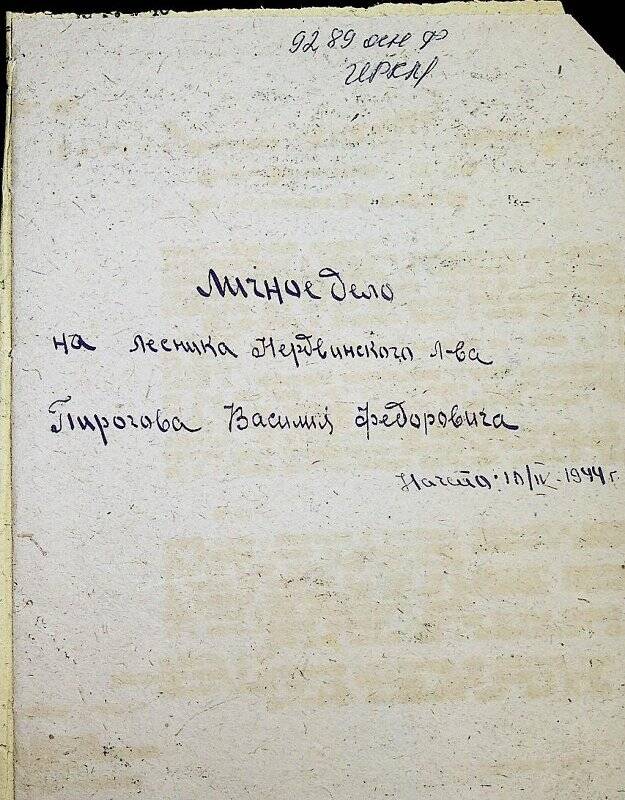 9289 осн ф
ЧРКМ
Личное дело
на лесника Нердвинского л-ва
Пирогова Василия Федоровича
Начато: 10/IV-1944 г.